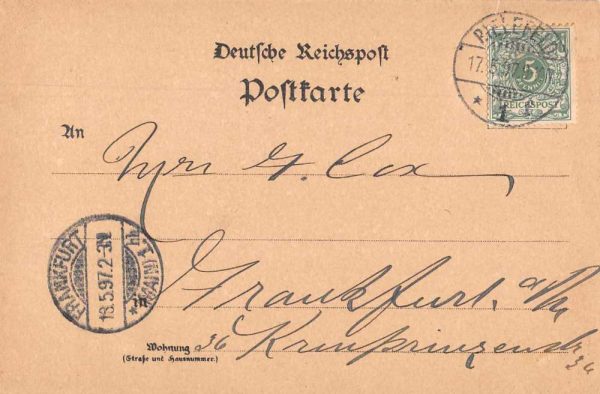 Deutsche Reichspost
Postkarte
BIELEFELD
17.5.97
* 1
5
REICHSPOST
An
Mrs G. Cox
FRANKFURT (MAIN) 1. hh
18.5.97. 2-3N
*
Frankfurt a/M
Wohnung
(Straße und Hausnummer.)
36 Kronprinzenstr
36